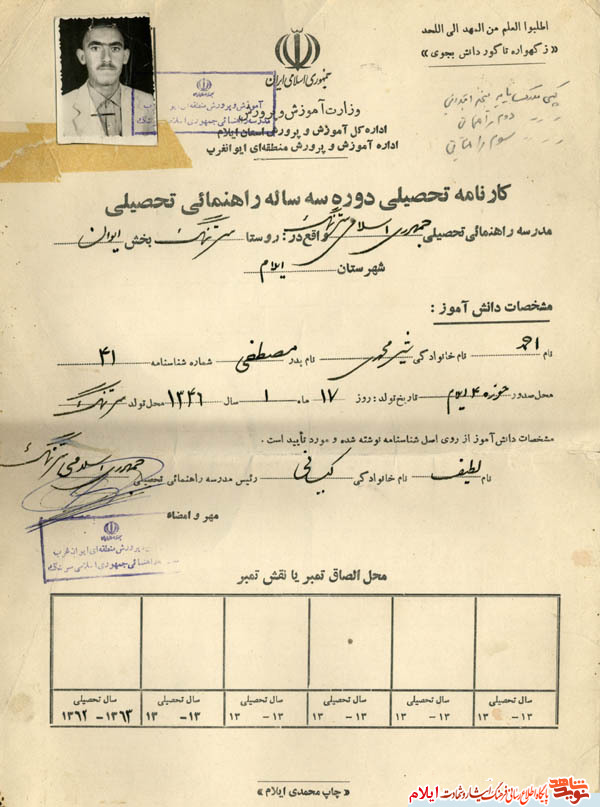 اطلبوا العلم من المهد الی اللحد
« ز گهواره تا گور دانش بجوی »
جمهوری اسلامی ایران
وزارت آموزش و پرورش
اداره کل آموزش و پرورش استان ایلام
اداره آموزش و پرورش منطقه‌ای ایوانغرب
آموزش و پرورش منطقه‌ای ایوانغرب
مدرسه راهنمائی جمهوری اسلامی سرتنگ
دوم راهنمایی
سوم راهنمایی
کارنامه تحصیلی دوره سه ساله راهنمائی تحصیلی
مدرسه راهنمائی تحصیلی جمهوری اسلامی سرتنگ واقع در : روستا سرتنگ بخش ایوان
شهرستان ایلام
مشخصات دانش آموز :
نام احمد نام خانوادگی شیرمحمدی نام پدر مصطفی شماره شناسنامه ۴۱
محل صدور حوزه ۴ ایلام تاریخ تولد : روز ۱۷ ماه ۱ سال ۱۳۴۶ محل تولد سرتنگ
مشخصات دانش آموز از روی اصل شناسنامه نوشته شده و مورد تأیید است .
نام لطیف نام خانوادگی کیانی رئیس مدرسه راهنمائی تحصیلی جمهوری اسلامی سرتنگ
مهر و امضاء
پرورش منطقه‌ای ایوانغرب
راهنمائی جمهوری اسلامی سرتنگ
محل الصاق تمبر یا نقش تمبر
سال تحصیلی سال تحصیلی سال تحصیلی سال تحصیلی سال تحصیلی سال تحصیلی
۱۳ - ۱۳ ۱۳ - ۱۳ ۱۳ - ۱۳ ۱۳ - ۱۳ ۱۳ - ۱۳ ۱۳۶۳ - ۱۳۶۲
« چاپ محمدی ایلام »
نوید شاهد
پایگاه اطلاع رسانی فرهنگ ایثار و شهادت ایلام